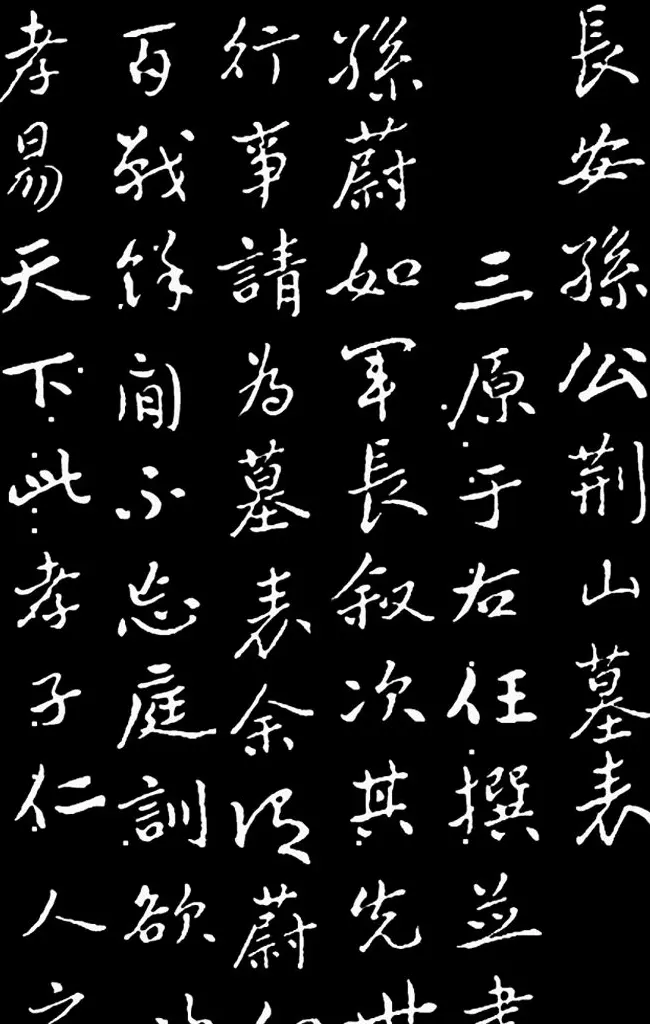 長安孫公荆山墓表
三原于右任撰並書
孫蔚如軍長叙次其先世
行事請為墓表余谓蔚如
百戰餘间不忘庭訓欲
孝易天下此孝子仁人之